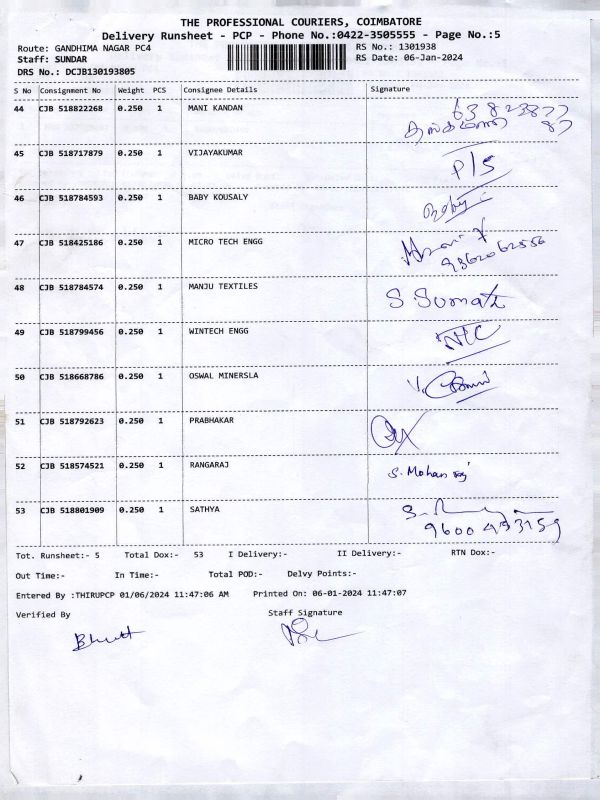 THE PROFESSIONAL COURIERS, COIMBATORE
Delivery Runsheet - PCP - Phone No.:0422-3505555 - Page No.:5
Route: GANDHIMA NAGAR PC4 RS No.: 1301938
Staff: SUNDAR RS Date: 06-Jan-2024
DRS No.: DCJB130193805
S No Consignment No Weight PCS Consignee Details Signature
44 CJB 518822268 0.250 1 MANI KANDAN
45 CJB 518717879 0.250 1 VIJAYAKUMAR P/S
46 CJB 518784593 0.250 1 BABY KOUSALY Baby
47 CJB 518425186 0.250 1 MICRO TECH ENGG
48 CJB 518784574 0.250 1 MANJU TEXTILES S. Sumati
49 CJB 518799456 0.250 1 WINTECH ENGG
50 CJB 518668786 0.250 1 OSWAL MINERSLA
51 CJB 518792623 0.250 1 PRABHAKAR
52 CJB 518574521 0.250 1 RANGARAJ S. Mohan raj
53 CJB 518801909 0.250 1 SATHYA
Tot. Runsheet:- 5 Total Dox:- 53 I Delivery:- II Delivery:- RTN Dox:-
Out Time:- In Time:- Total POD:- Delvy Points:-
Entered By :THIRUPCP 01/06/2024 11:47:06 AM Printed On: 06-01-2024 11:47:07
Verified By Staff Signature